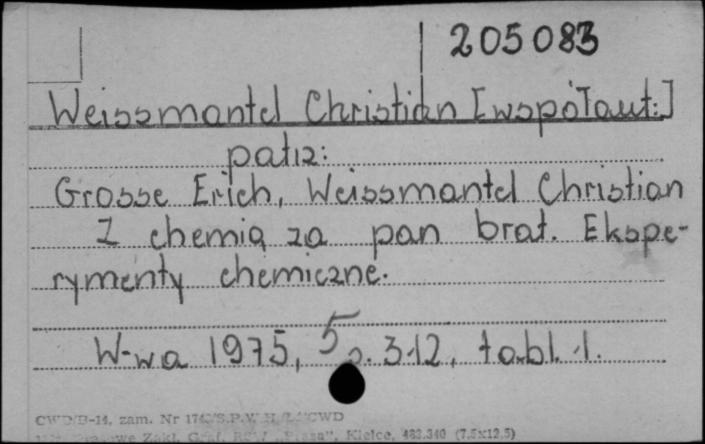 205083
Weissmantel Christian [współaut.:]
patrz:
Grosse Erich, Weissmantel Christian
Z chemią za pan brat. Ekspe-
rymenty chemiczne.
W-wa 1975, s. 312, tabl. 1.
CWD/B-14, zam. Nr
Zakł. Graf. RSW „Prasa", Kielce, 482.340 (7.5x12.5)